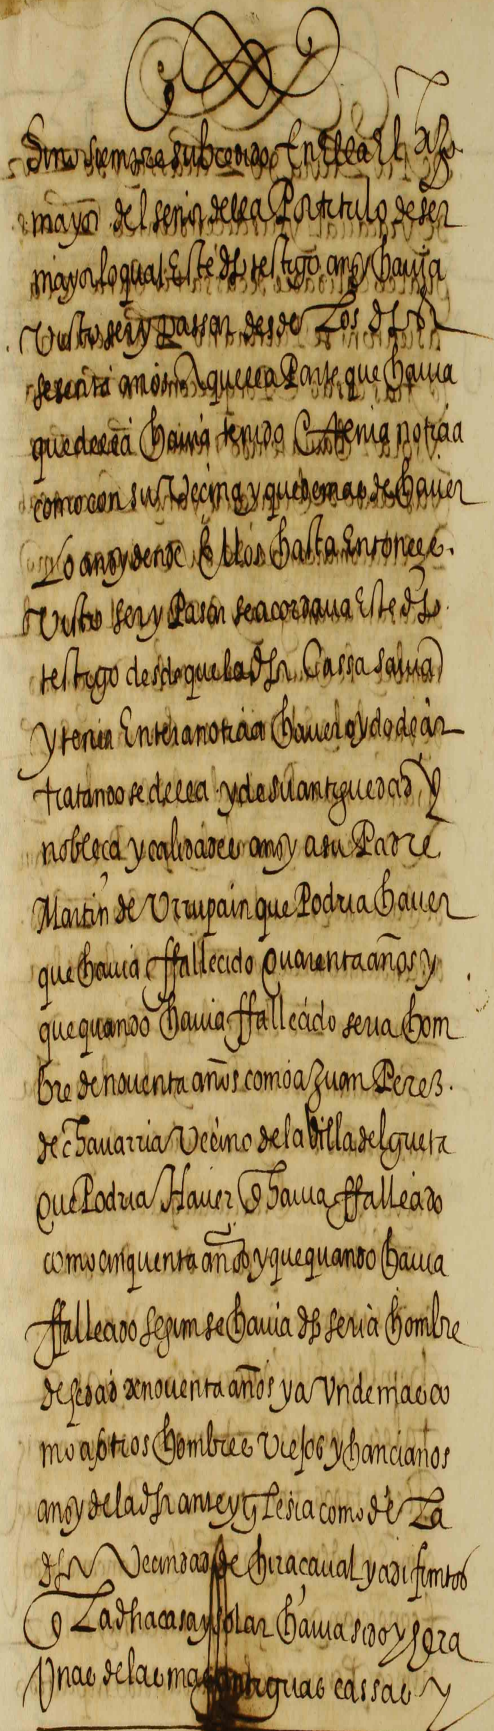 Sino siempre subcedido En ella El hijo
mayor del señor della Por titulo de ser
mayor lo qual Este dho testigo ansy havia
Visto ser y passar desde Los dhos
sesenta años A quella Parte que havia
que della havia tenido E tenia noticia
como con su Vecina y que demas de haver
Lo ansy dende Ellos hasta Entonces
Visto ser y Pasar se acordava Este dho
testigo desde que la dha Cassa savia
y tenia Entera noticia haver oydo decir
tratandose della y de su antiguedad y
nobleça y calidades ansy a su Padre
Martin de Urrupain que Podria haver
que havia ffallecido quarenta años y
que quando havia ffallecido seria hom
bre de noventa años como a Juan Perez
de chavarria Vecino de la Villa delgueta
que Podria Haver q havia ffallecido
como cinquenta años y que quando havia
ffallecido segun se havia dho seria hombre
de hedad de noventa años y a Unde mas co
mo a otros hombres viejos y hancianos
ansy de la dha ante yglesia como de La
dha Vecindad de hiracaval ya difuntos
q La dha casa y solar havia sido y hera
Una de las mas antiguas cassas y